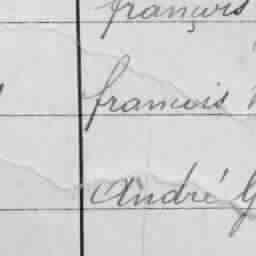 françois
francois
André G